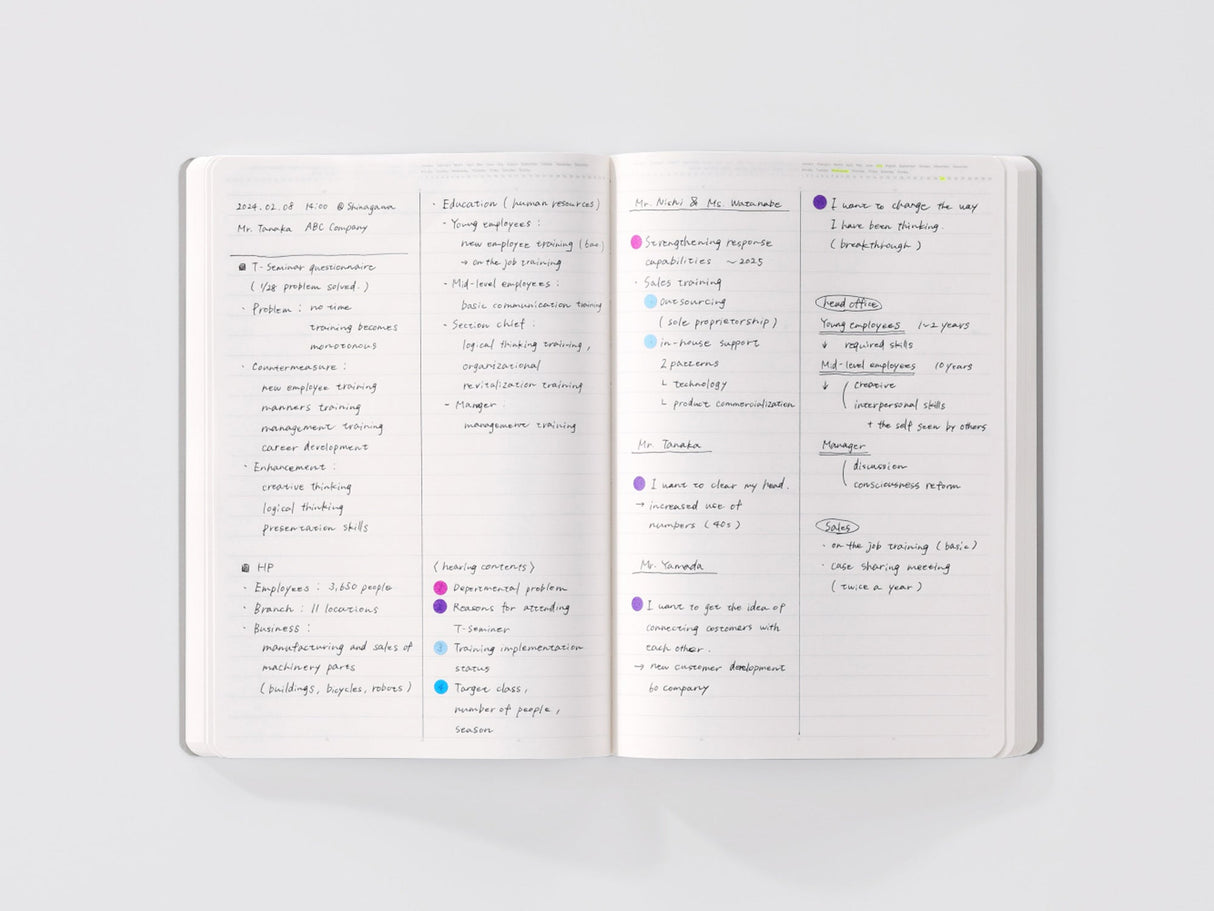 2024.02.08 14:00 @Shinagawa
Mr. Tanaka ABC Company
T-Seminar questionnaire
( 1/28 problem solved. )
· Problem : no time
training becomes
monotonous
· Countermeasure :
new employee training
manners training
management training
career development
· Enhancement :
creative thinking
logical thinking
presentation skills
HP
· Employees : 3,650 people
· Branch : 11 locations
· Business :
manufacturing and sales of
machinery parts
( buildings, bicycles, robots )
· Education ( human resources )
- Young employees :
new employee training ( bac.)
→ on the job training
- Mid-level employees :
basic communication training
- Section chief :
logical thinking training ,
organizational
revitalization training
- Manger :
management training
〈 hearing contents 〉
Departmental problem
2 Reasons for attending
T-Seminar
3 Training implementation
status
4 Target class ,
number of people ,
season
Mr. Nishi & Ms. Watanabe
Strengthening response
capabilities ~2025
· Sales training
outsourcing
( sole proprietorship )
in-house support
2 patterns
└ technology
└ product commercialization
Mr. Tanaka
I want to clear my head.
→ increased use of
numbers ( 40s )
Mr. Yamada
I want to get the idea of
connecting costomers with
each other.
→ new customer development
60 company
I want to change the way
I have been thinking.
( breakthrough )
head office
Young employees 1~2 years
↓ required skills
Mid-level employees 10 years
↓ ( creative
interpersonal skills
+ the self seen by others
Manager
( discussion
consciousness reform
Sales
· on the job training ( basic )
· case sharing meeting
( twice a year )